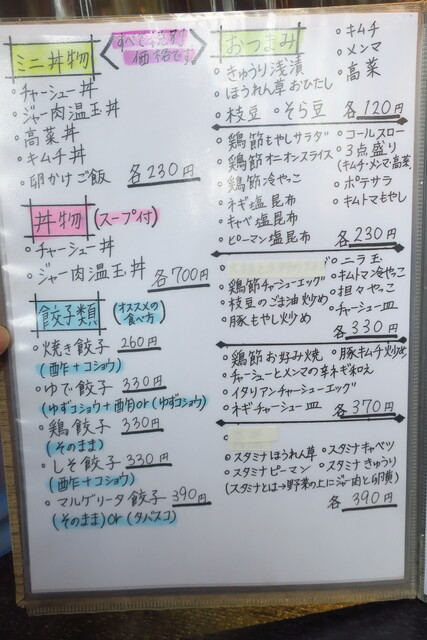 ミニ丼物
すべて税別
価格です
・チャーシュー丼
・ジャー肉温玉丼
・高菜丼
・キムチ丼
・卵かけご飯 各230円
丼物(スープ付)
・チャーシュー丼
・ジャー肉温玉丼 各700円
餃子類 (オススメの食べ方)
・焼き餃子 260円
(酢+コショウ)
・ゆで餃子 330円
(ゆずコショウ+酢)or(ゆずコショウ)
・鶏餃子 330円
(そのまま)
・しそ餃子 330円
(酢+コショウ)
・マルゲリータ餃子 390円
(そのまま)or(タバスコ)
おつまみ
・キムチ
・メンマ
・高菜
・きゅうり浅漬
・ほうれん草おひたし
・枝豆 ・そら豆 各120円
・鶏節もやしサラダ ・コールスロー
・鶏節オニオンスライス ・3点盛り
(キムチ・メンマ・高菜)
・鶏節冷やっこ ・ポテサラ
・ネギ塩昆布 ・キムトマもやし
・キャベ塩昆布
・ピーマン塩昆布 各230円
・ニラ玉
・鶏節チャーシューエッグ ・キムトマ冷やっこ
・枝豆のごま油炒め ・担々やっこ
・豚もやし炒め ・チャーシュー皿
各330円
・鶏節お好み焼 ・豚キムチ炒め
・チャーシューとメンマの辛ネギ和え
・イタリアンチャーシューエッグ
・ネギチャーシュー皿 各370円
・スタミナほうれん草 ・スタミナキャベツ
・スタミナピーマン ・スタミナきゅうり
(スタミナとは→野菜の上にジャー肉と卵黄)
各390円